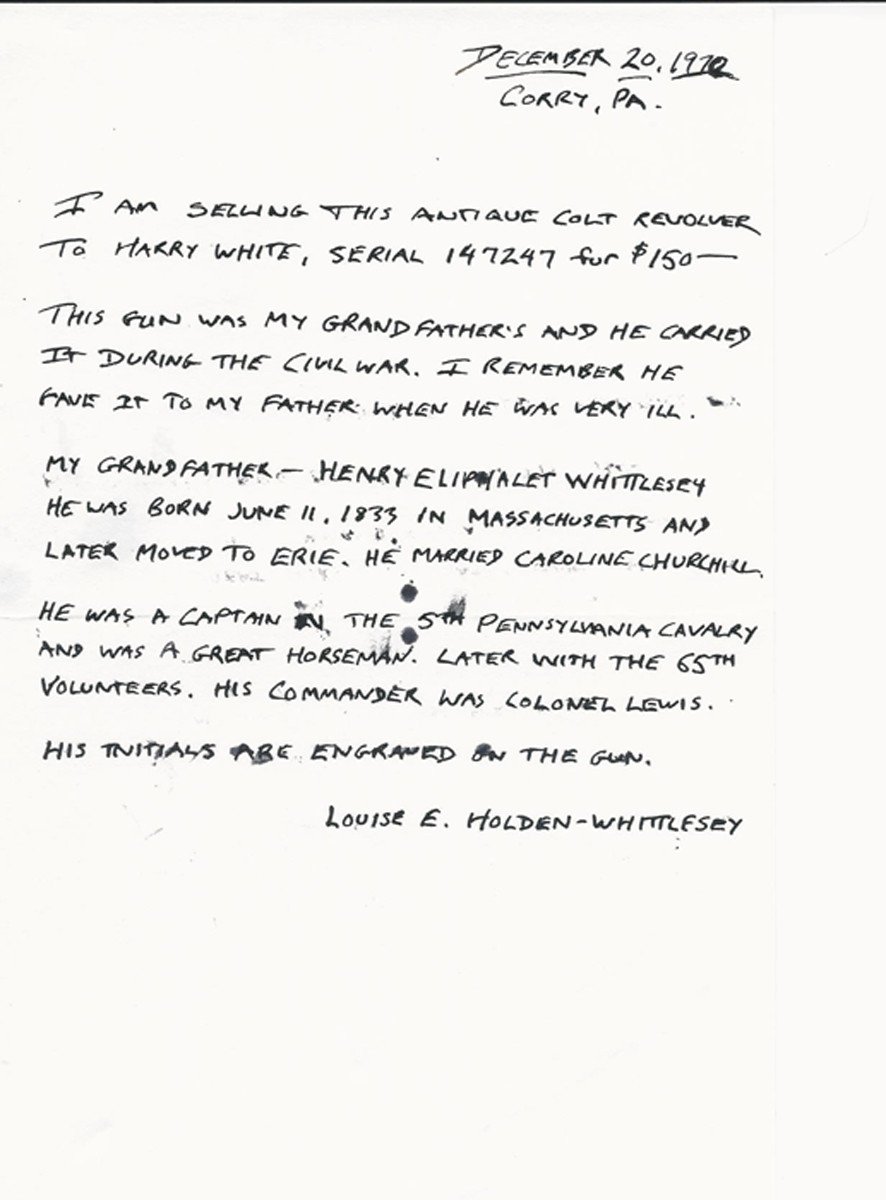 DECEMBER 20, 1972
CORRY, PA.
I AM SELLING THIS ANTIQUE COLT REVOLVER
TO HARRY WHITE, SERIAL 147247 for $150—
THIS GUN WAS MY GRANDFATHER'S AND HE CARRIED
IT DURING THE CIVIL WAR. I REMEMBER HE
GAVE IT TO MY FATHER WHEN HE WAS VERY ILL.
MY GRANDFATHER — HENRY ELIPHALET WHITTLESEY
HE WAS BORN JUNE 11, 1833 IN MASSACHUSETTS AND
LATER MOVED TO ERIE. HE MARRIED CAROLINE CHURCHILL.
HE WAS A CAPTAIN IN THE 5TH PENNSYLVANIA CAVALRY
AND WAS A GREAT HORSEMAN. LATER WITH THE 65TH
VOLUNTEERS. HIS COMMANDER WAS COLONEL LEWIS.
HIS INITIALS ARE ENGRAVED ON THE GUN.
LOUISE E. HOLDEN-WHITTLESEY